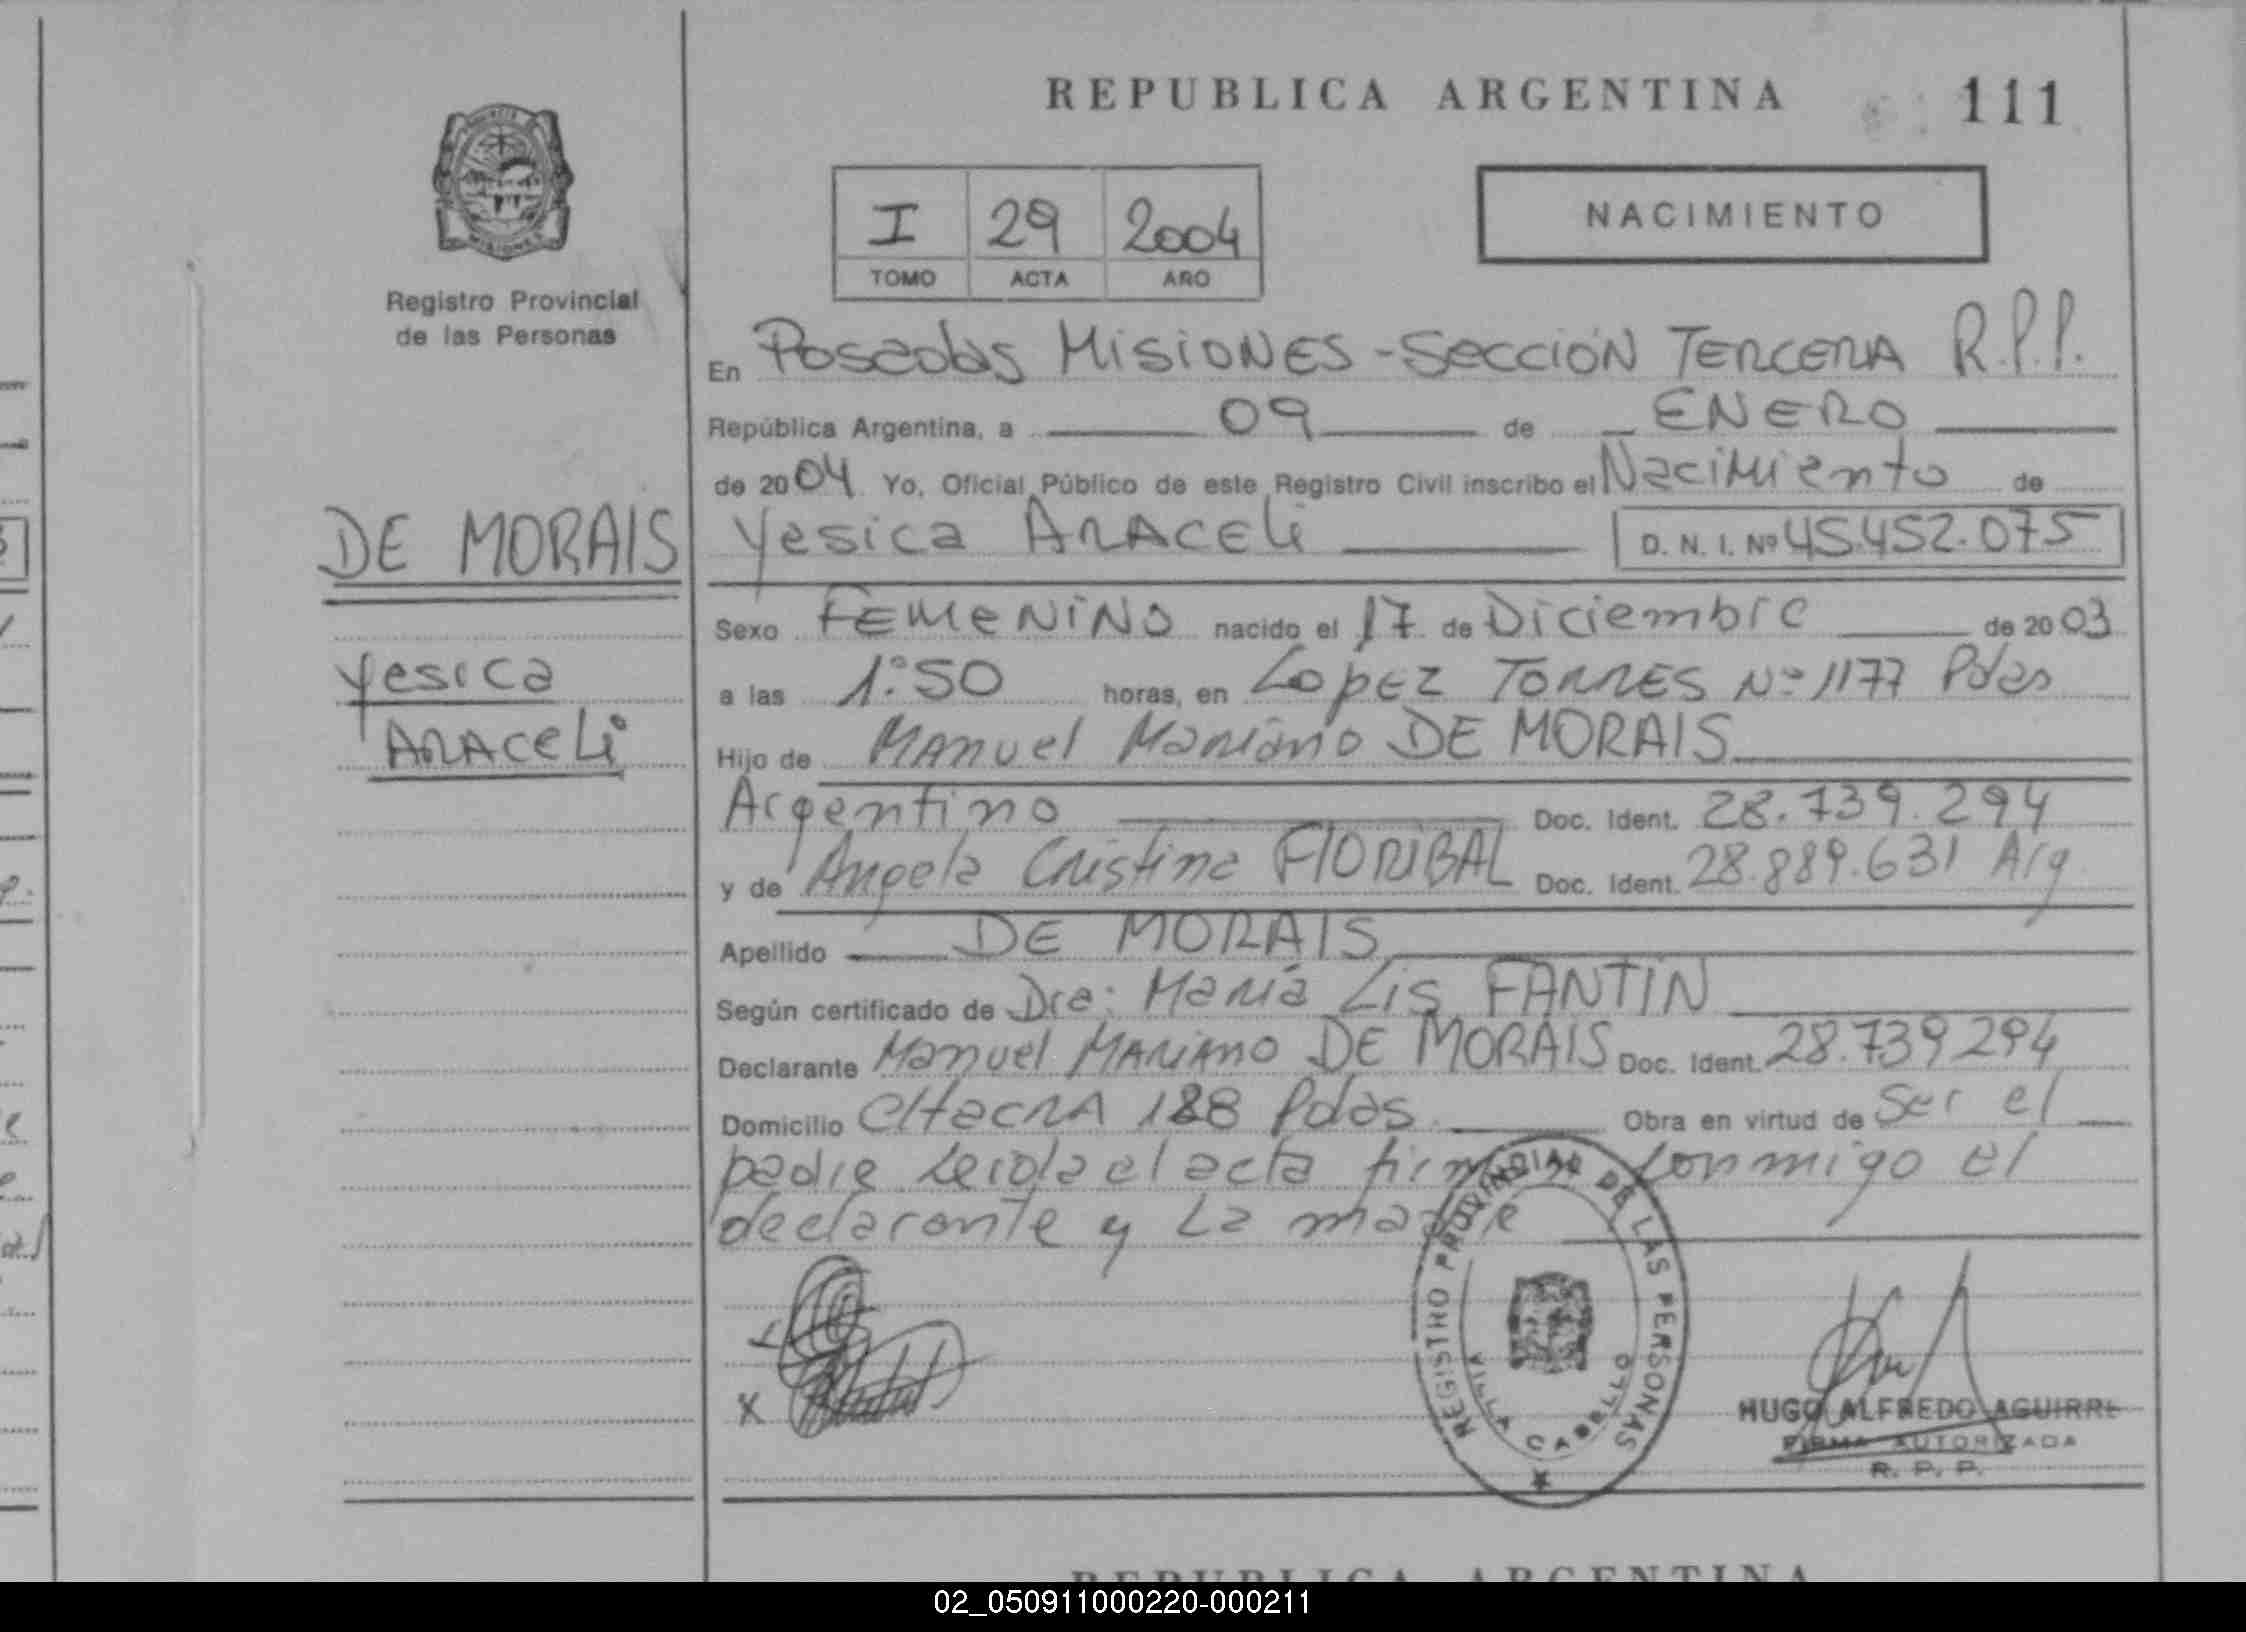 REPUBLICA ARGENTINA 111
Registro Provincial
de las Personas
MISIONES
I 29 2004
TOMO ACTA AÑO
NACIMIENTO
En Posadas MISIONES - SECCIÓN TERCERA R.P.P.
República Argentina, a 09 de ENERO
de 2004 Yo, Oficial Público de este Registro Civil inscribo el Nacimiento de
DE MORAIS
Yesica ARACELI D. N. I. Nº 45.452.075
Sexo FEMENINO nacido el 17 de Diciembre de 2003
Yesica
a las 1:50 horas, en Lopez TORRES Nº 1177 Pdas
ARACELI
Hijo de MANUEL Mariano DE MORAIS
Argentino Doc. Ident. 28.739.294
y de Angela Cristina FLORIBAL Doc. Ident. 28.889.631 Arg
Apellido DE MORAIS
Según certificado de Dra: María Lis FANTIN
Declarante Manuel MARIANO DE MORAIS Doc. Ident. 28.739294
Domicilio 188 Pdas Obra en virtud de ser el
padre Leida el acta firman conmigo el
declarante y La madre
X
REGISTRO PROVINCIAL DE LAS PERSONAS
VILLA CABELLO
HUGO ALFREDO AGUIRRE
FIRMA AUTORIZADA
R. P. P.
REPUBLICA ARGENTINA
02_050911000220-000211